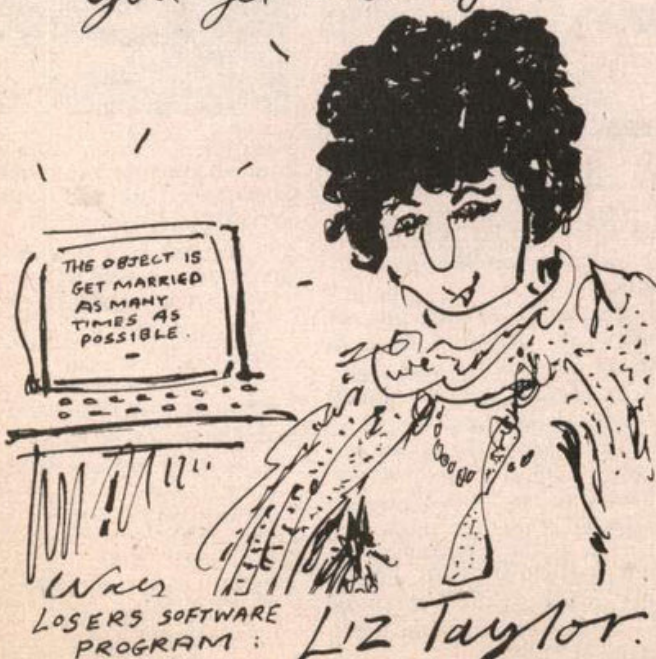 THE OBJECT IS
GET MARRIED
AS MANY
TIMES AS
POSSIBLE.
LOSERS SOFTWARE
PROGRAM: LIZ Taylor.